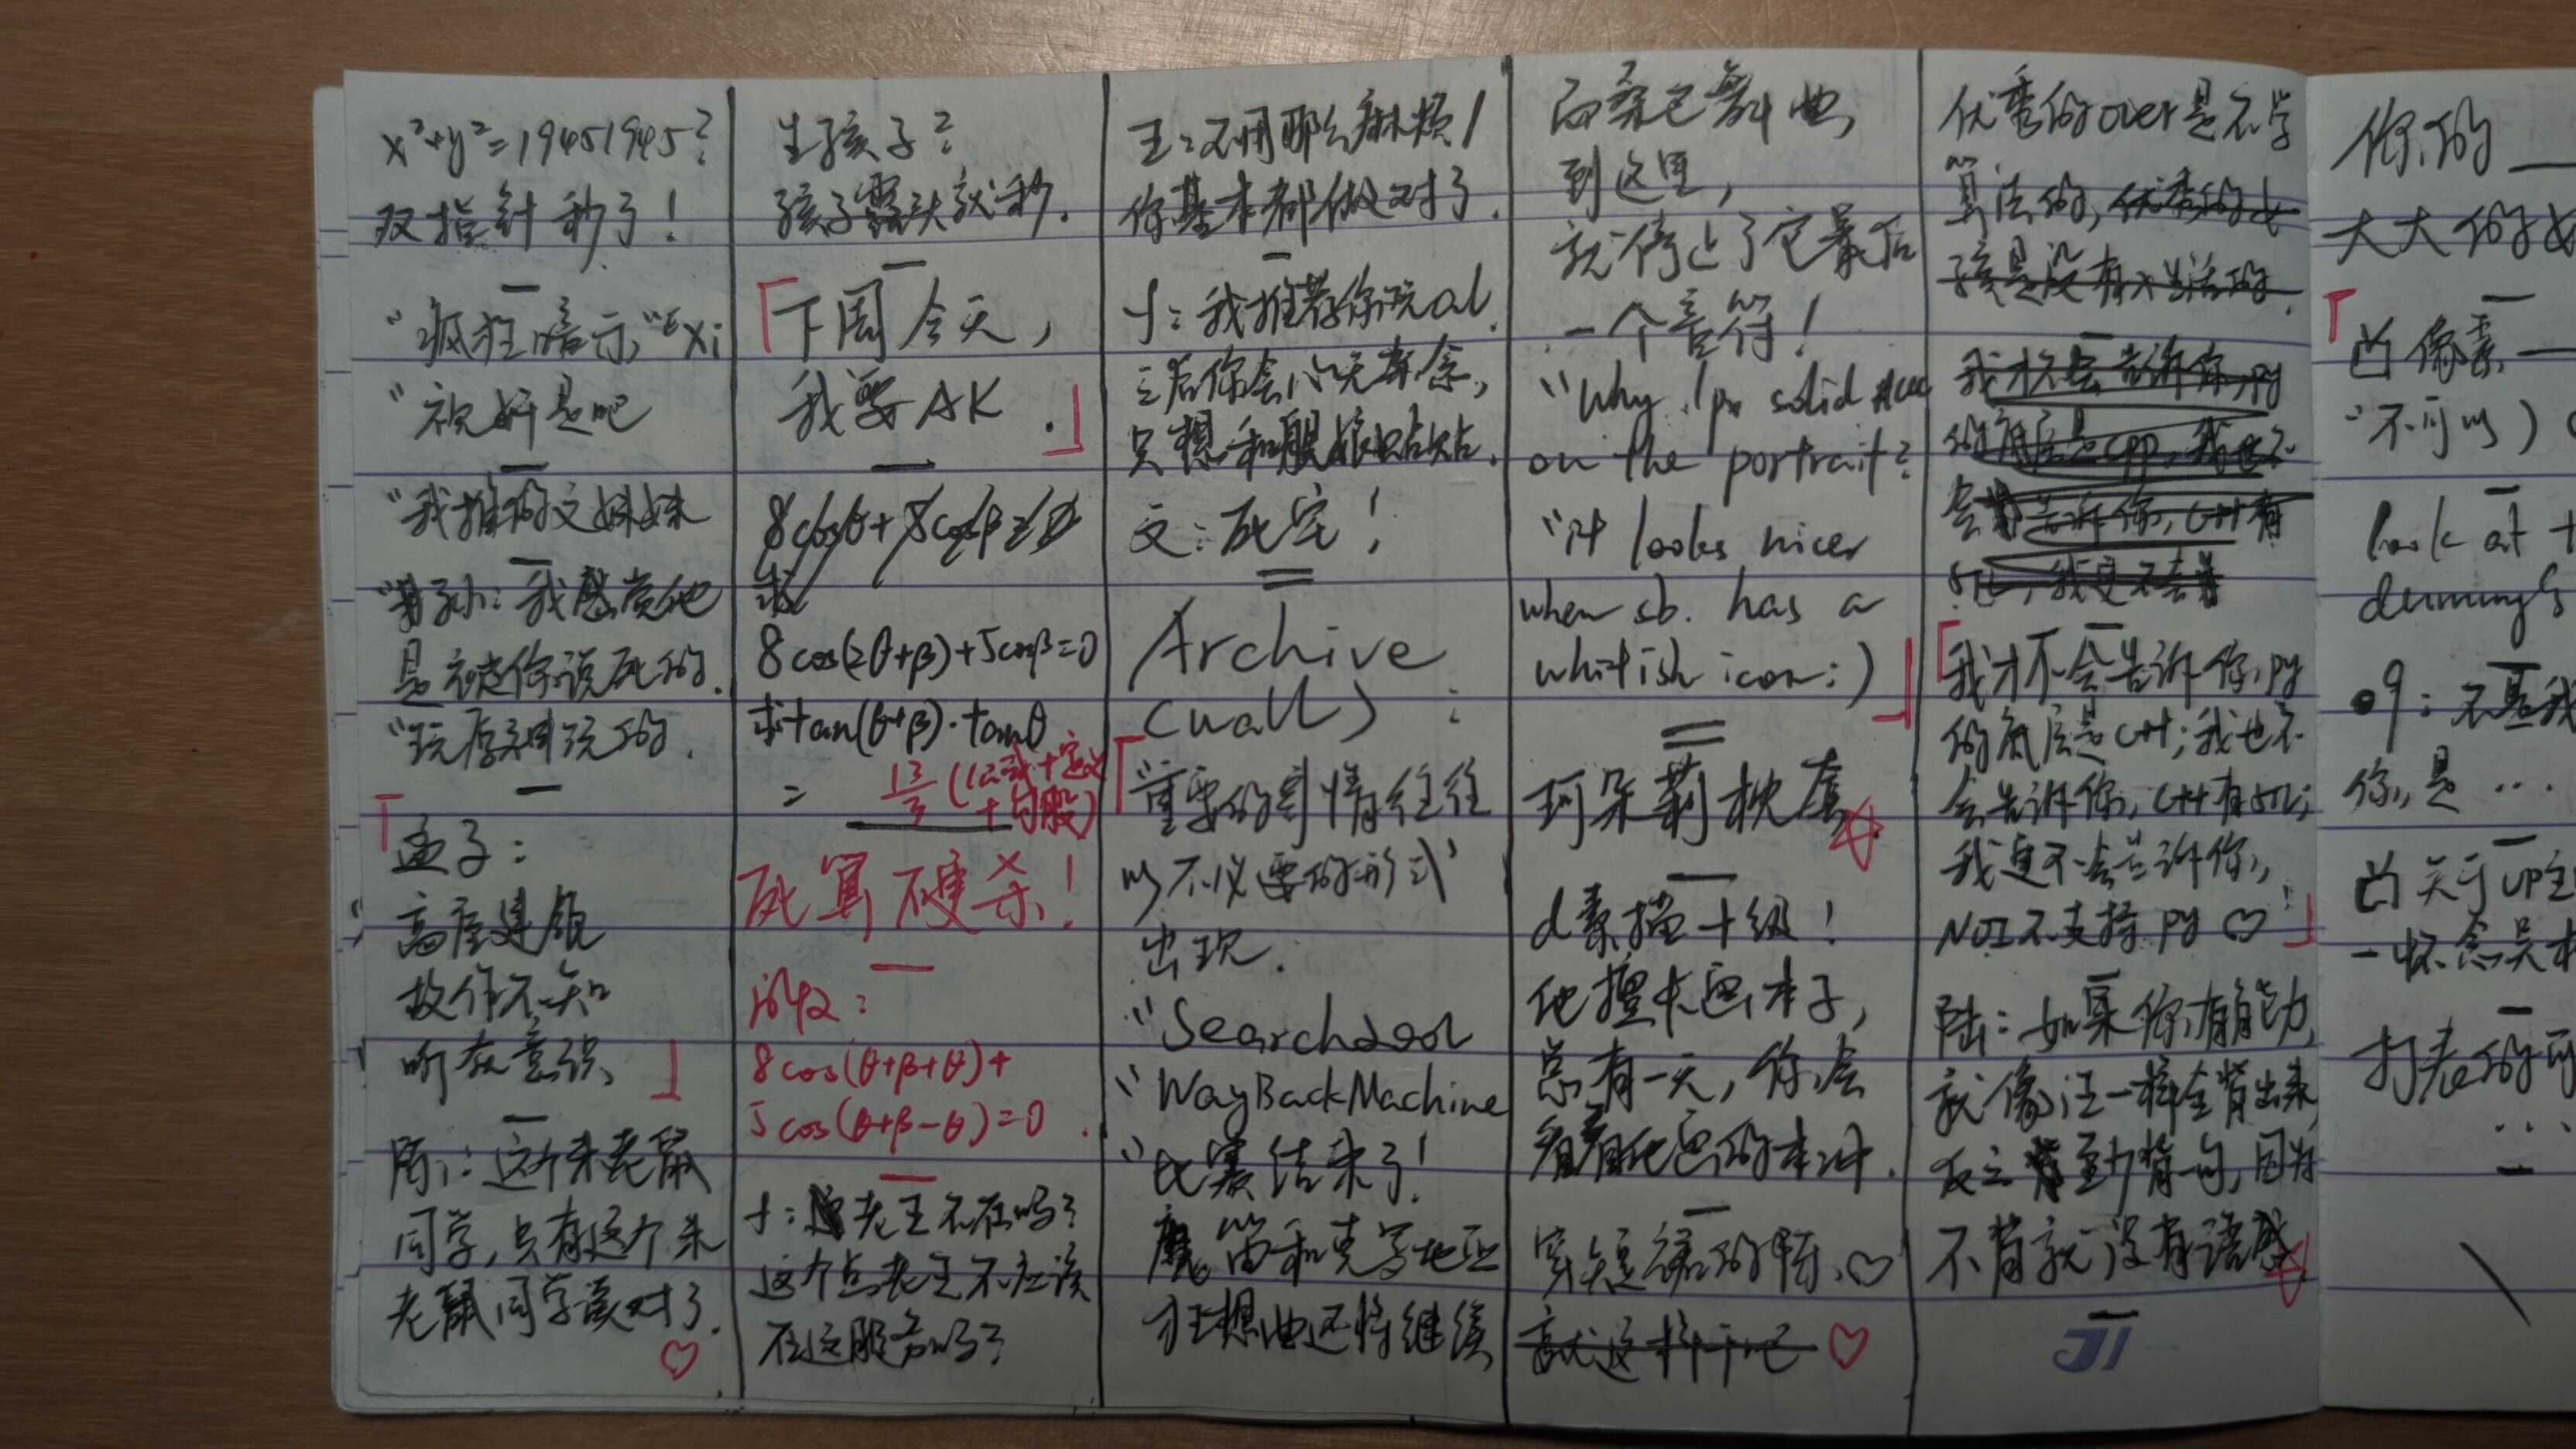 x²+y²=19451945?
双指针秒了!
"疯狂暗示"
"祝好是吧
"我推的文妹妹
我感觉他
是被你说死的.
"玩原神玩的.
「孟子:
高屋建瓴
故作不知
听友意识」
这个朱老鼠
同学,只有这个朱
老鼠同学读对了.
生孩子?
孩子露头就秒.
「下周今天,
我要AK.」
求
8cos(2θ+β)+5cosβ=0
求tan(θ+β)·tanθ
= 13/3 (公式+定义
+勾股)
死算硬杀!
8cos(θ+β+θ)+
5cos(θ+β-θ)=0.
老王不在吗?
这个点老王不应该
在这服务吗?
王:不用那么麻烦!
你基本都做对了.
我推荐你玩al.
之后你会心无杂念,
只想和舰娘贴贴.
文:死宅!
Archive
(wall):
「"重要的事情往往
以不必要的形式"
出现.
"Searchdool
"WayBackMachine
"比赛结束了!
魔笛和克罗地亚
狂想曲还将继续
而桑巴舞曲,
到这里,
就停止了它最后
一个音符!
"Why 1px solid
on the portrait?
"it looks nicer
when sb. has a
whitish icon:)」
珂朵莉枕席
d素描十级!
他擅长画本子,
总有一天,你会
看着他画的本冲.
穿短裙的陈.♡
就这样干吧 ♡
优秀的over是不学
算法的,优秀的女
孩是没有x生活的.
我才不会告诉你,py
的底层是cpp,我也不
会告诉你,C++有
STL,我更不会告
「我才不会告诉你,py
的底层是C++;我也不
会告诉你,C++有STL;
我更不会告诉你,
NOI不支持py♡」
陆:如果你有能力,
就像汪一样全背出来,
反之背到背一句,因为
不背就没有语感
JI
你的
大大的女
「凸像素一
"不可以)
look at
dummy
不是我
你,是...
凸关于UP主
一怀念吴本
打表的可
...